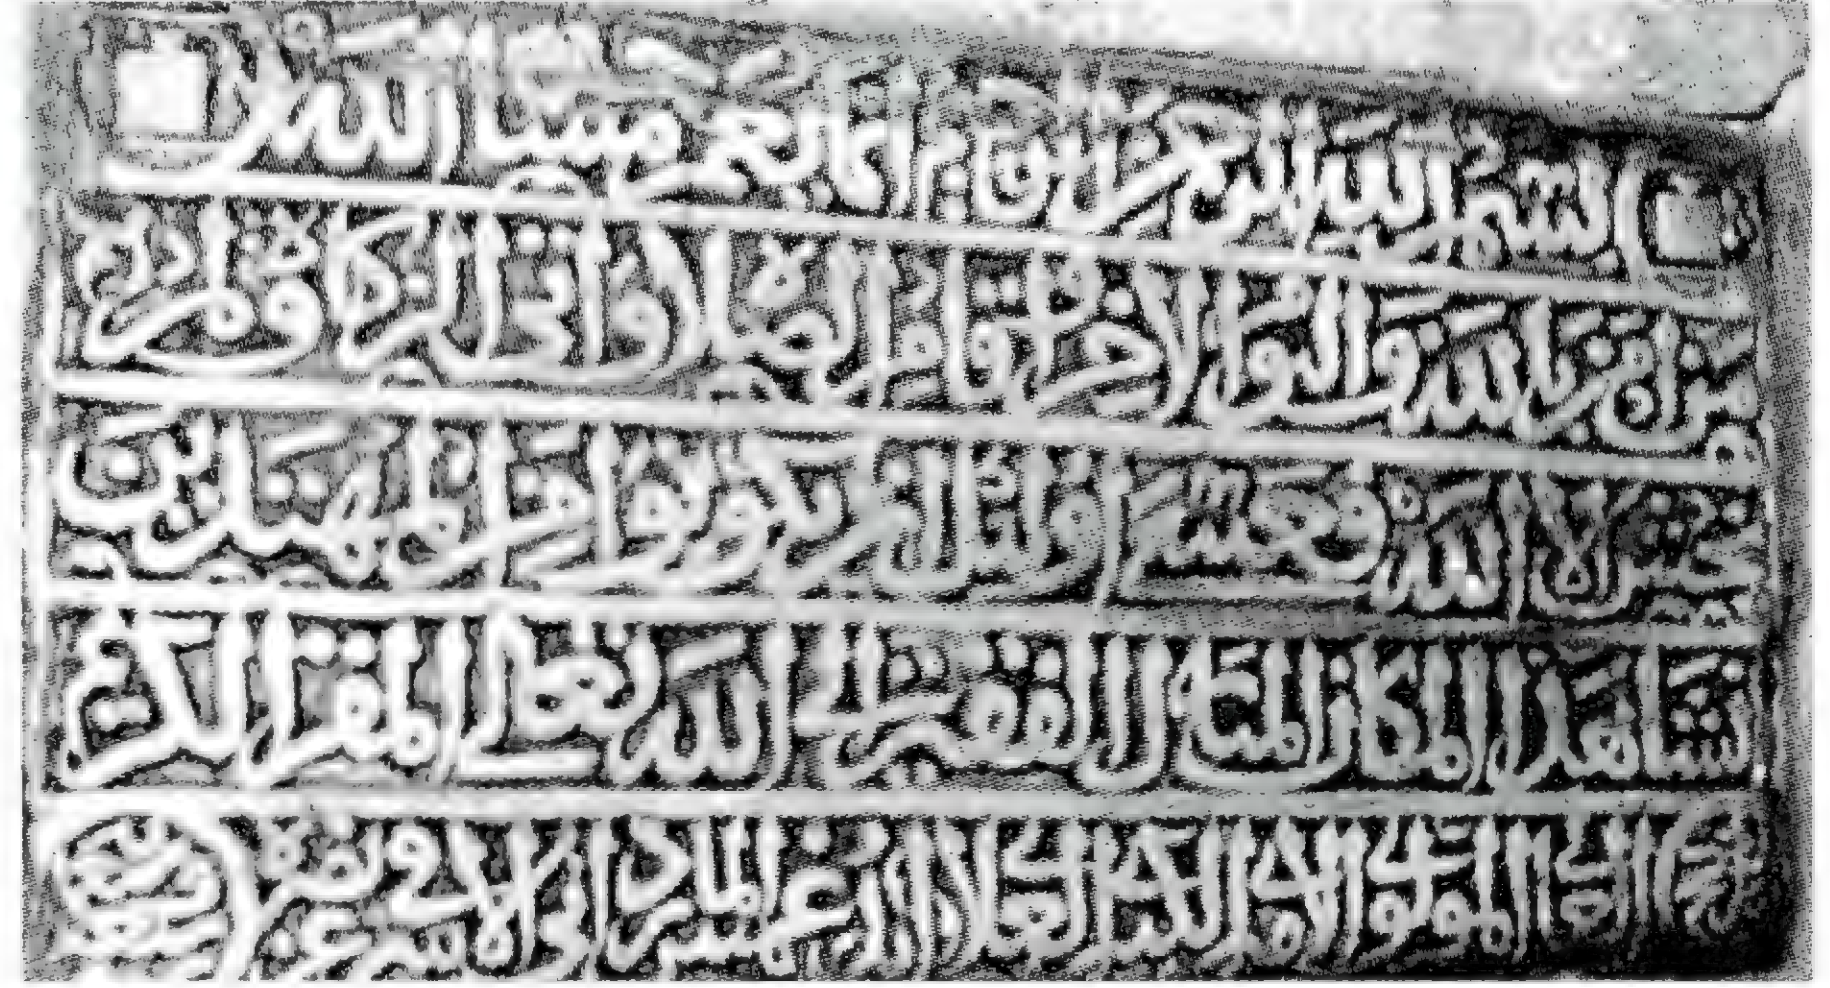 بسم الله الرحمن الرحيم انما يعمر مساجد الله
من امن بالله واليوم الاخر واقام الصلاة واتى الزكاة ولم
يخش الا الله فعسى اولئك ان يكونوا من المهتدين
انشا هذا المكان المبارك الفقير الى الله تعالى المقر الكريم
العالي المولوي الاميري الكبيري